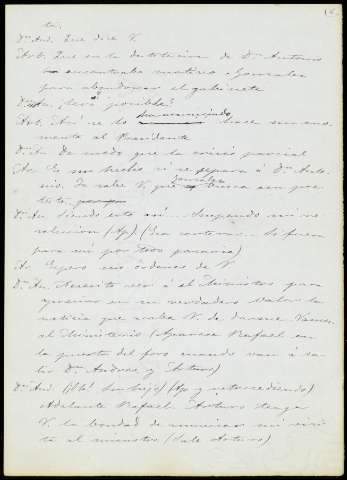 to.
Dn And. Qué dice V.
Art. Que en la destitucion de Dn Antonio
encontraba motivo Gonzalez
para abandonar el gabinete
Dn An. Será posible?
Art. Asi se lo ha anunciado hace un mo-
mento al Presidente
Dn An De modo que la crisis parcial
Ar. Es un hecho si se separa á Dn Anto-
nio. Ya sabe V. que Gonzalez busca un pre-
testo.
Dn An Siendo esto asi... Suspendo mi re-
solucion (Ap)
para mi por tres
Ar Espero las órdenes de V.
Dn An. Necesito ver á el Ministro para
en su verdadero valor la
noticia que acaba V. de darme Vamos
al Ministerio (Aparece Rafael en
la puerta del foro cuando van á sa-
lir Dn Andres y Arturo)
Dn And (Ap y retrocediendo)
Adelante Rafael. Arturo tenga
V. la bondad de anunciar mi visi-
ta al ministro (Sale Arturo)